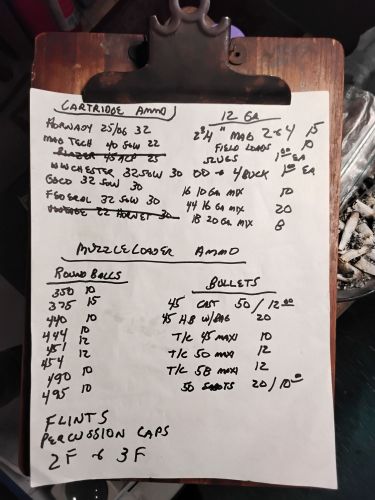 CARTRIDGE AMMO
HORNADY 25/06 32
MAG TECH 40 S&W 22
BLAZER 45 ACP 25
WINCHESTER 32 S&W 30
GECO 32 S&W 30
FEDERAL 32 S&W 30
VINTAGE 22 HORNET 30
12 GA
2 3/4" MAG 2 & 4 15
FIELD LOADS 10
SLUGS 1.00 EA
00 & 4 BUCK 1.00 EA
16 10 GA MIX 10
44 16 GA MIX 20
18 20 GA MIX 8
MUZZLELOADER AMMO
ROUND BALLS
350 10
375 15
440 10
444 10
451 12
454 12
490 10
495 10
BULLETS
45 CAST 50/12.00
45 HB W/BAG 20
T/C 45 MAXI 10
T/C 50 MAXI 12
T/C 58 MAXI 12
50 SABOTS 20/10.00
FLINTS
PERCUSSION CAPS
2F & 3F